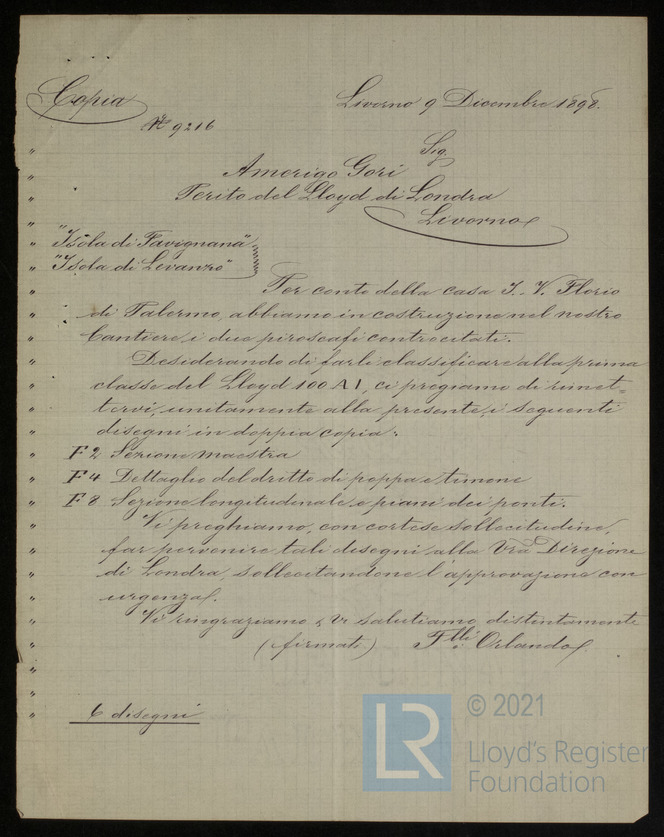 Copia
Livorno 9 Dicembre 1898.
No 9216
Sig.
Amerigo Gori
Perito del Lloyd di Londra
Livorno
"Isola di Favignana"
"Isola di Levanzo"
Per conto della casa I. V. Florio
di Palermo, abbiamo in costruzione nel nostro
Cantiere i due piroscafi controcitati.
Desiderando di farli classificare alla prima
classe del Lloyd 100 A 1, ci pregiamo di rimet=
tervi, unitamente alla presente, i seguenti
disegni in doppia copia:
F 2 Sezione maestra
F 4 Dettaglio del dritto di poppa e timone
F 8 Sezione longitudinale e piani dei ponti.
Vi preghiamo, con cortese sollecitudine,
far pervenire tali disegni alla Vra Direzione
di Londra, sollecitandone l'approvazione con
urgenza.
Vi ringraziamo & Vi salutiamo distintamente
(firmati) F.lli Orlando
6 disegni
LR
© 2021
Lloyd's Register
Foundation